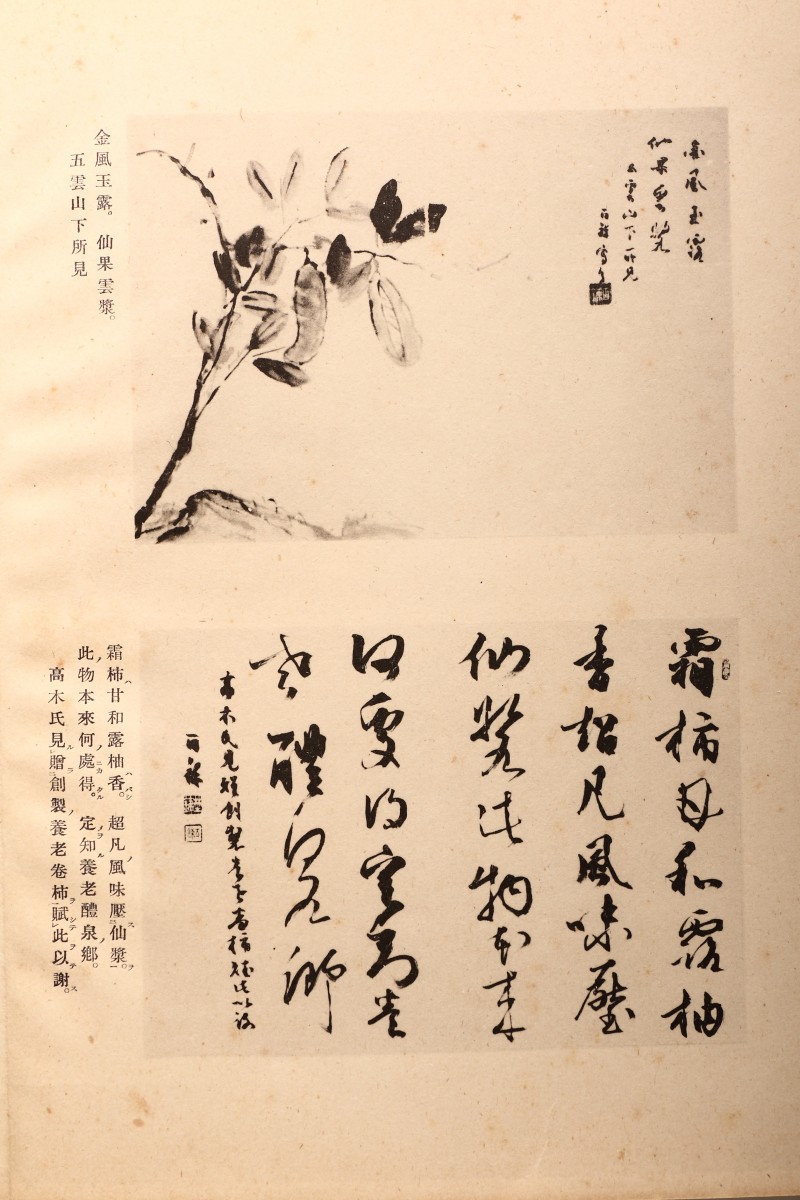 金風玉露
仙果雲漿
五雲山下所見
金風玉露。仙果雲漿。
五雲山下所見
霜柿甘和露柚
香超凡風味壓
仙漿此物本來
何處得定知養
老醴泉鄉
高木氏見贈創製養老卷柿賦此以謝
霜柿甘和露柚香。超凡風味壓仙漿。
此物本來何處得。定知養老醴泉鄉。
高木氏見贈創製養老卷柿賦此以謝。